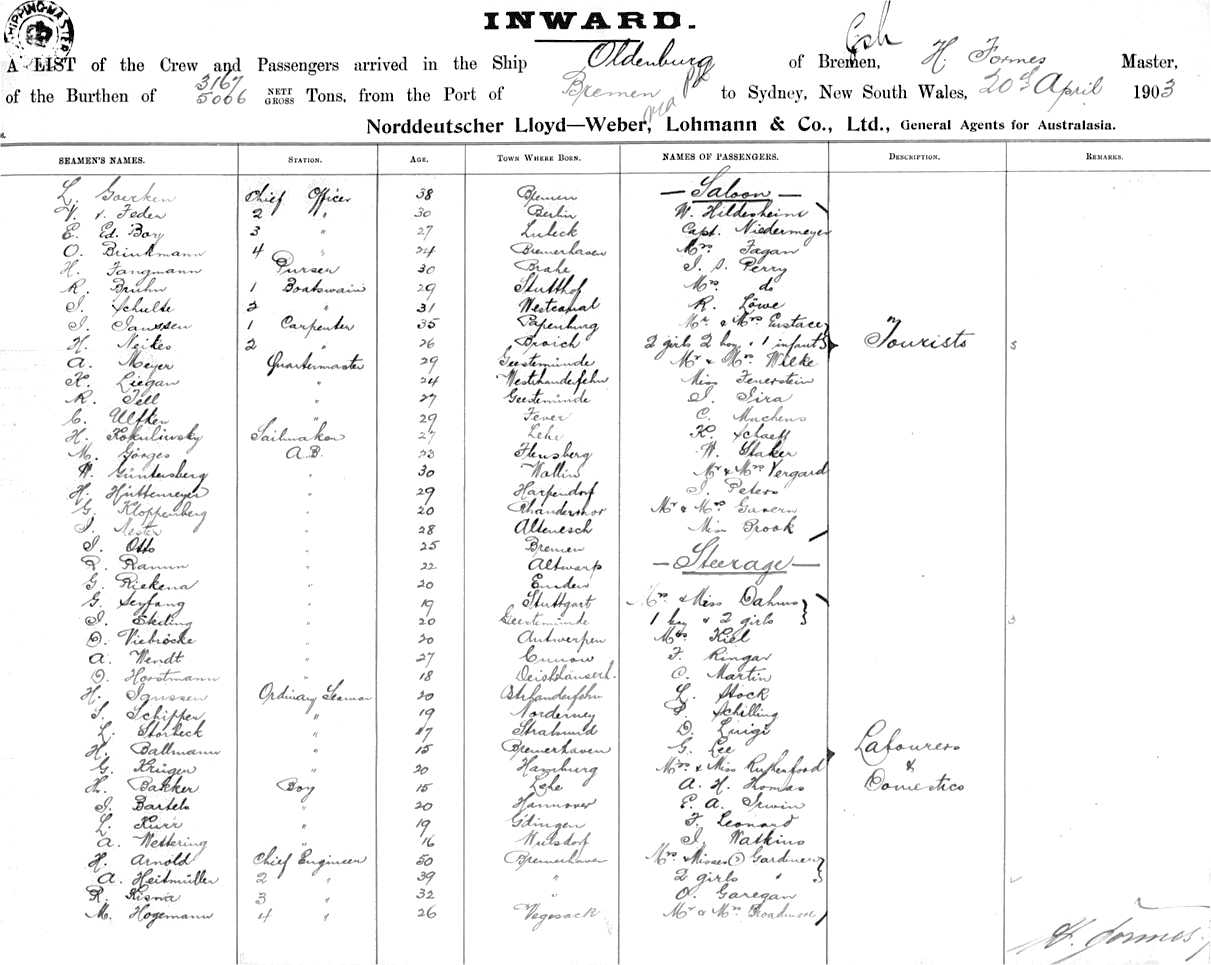 SHIPPING MASTER
INWARD.
A LIST of the Crew and Passengers arrived in the Ship Oldenburg of Bremen, H. Formes Master,
of the Burthen of 3167 5006 NETT GROSS Tons, from the Port of Bremen via to Sydney, New South Wales, 20th April 1903
Norddeutscher Lloyd—Weber, Lohmann & Co., Ltd., General Agents for Australasia.
SEAMEN'S NAMES. STATION. AGE. TOWN WHERE BORN. NAMES OF PASSENGERS. DESCRIPTION. REMARKS.
L. Goerken Chief Officer 38 Bremen — Saloon —
V. v. Feder 2 " 30 Berlin W. Hildesheim
E. Ed. Boy 3 " 27 Lubeck Capt. Niedermeyer
O. Brinkmann 4 " 24 Bremerhaven Mrs Fagan
H. Tangmann Purser 30 Brake J. S. Perry
R. Bruhn 1 Boatswain 29 Stutthof Mrs do
J. Schulte 2 " 31 Westcanal R. Löwe
J. Janssen 1 Carpenter 35 Papenburg Mr & Mrs Eustace
H. Neikes 2 " 26 Broich 2 girls 2 boy & 1 infant Tourists
A. Meyer Quartermaster 29 Geestemünde Mr & Mrs Wilke
K. Liegan " 24 Westrhauderfehn Miss Feuerstein
R. Tell " 27 Geestemünde J. Sira
C. Ulfken " 29 Fever C. Machens
H. Kokulinsky Sailmaker 27 Lehe K. Schaeff
M. Görges A.B. 23 Flensberg W. Staker
W. Güntersberg " 30 Wallin Mr & Mrs Vergard
H. Hüttemeyer " 29 Harpendorf J. Peters
G. Kloppenberg " 20 Mr & Mrs Gavern
J. Nester " 28 Altenesch Miss Prook
J. Otto " 25 Bremen
R. Ramm " 22 Altwarp — Steerage —
G. Riekena " 20 Emden
G. Seyfang " 19 Stuttgart Mrs & Miss Dahms
J. Ekeling " 20 Geestemünde 1 boy & 2 girls
D. Viebröcke " 20 Antwerpen Mrs Kiel
A. Wendt " 27 Cunow F. Ringar
D. Horstmann " 18 C. Martin
H. Janssen Ordinary Seaman 20 L. Stock
S. Schipper " 19 Norderney P. Schilling
L. Storbeck " 17 Stralsund D. Luigi
H. Ballmann " 15 Bremerhaven G. Lee Labourers
G. Krüger " 20 Hamburg Mrs & Miss Rutherford &
H. Bakker Boy 15 Lehe A. H. Thomas Domestics
J. Bartels " 20 Hannover E. A. Irwin
L. Kurr " 19 Gdingen F. Leonard
A. Wettering " 16 Wulsdorf J. Watkins
H. Arnold Chief Engineer 50 Bremerhaven Mrs & Misses Gardiner
A. Heitmüller 2 " 39 " 2 girls "
R. Kisna 3 " 32 " O. Garegan
M. Hogemann 4 " 26 Vegesack Mr & Mrs Broadmore
H. Formes